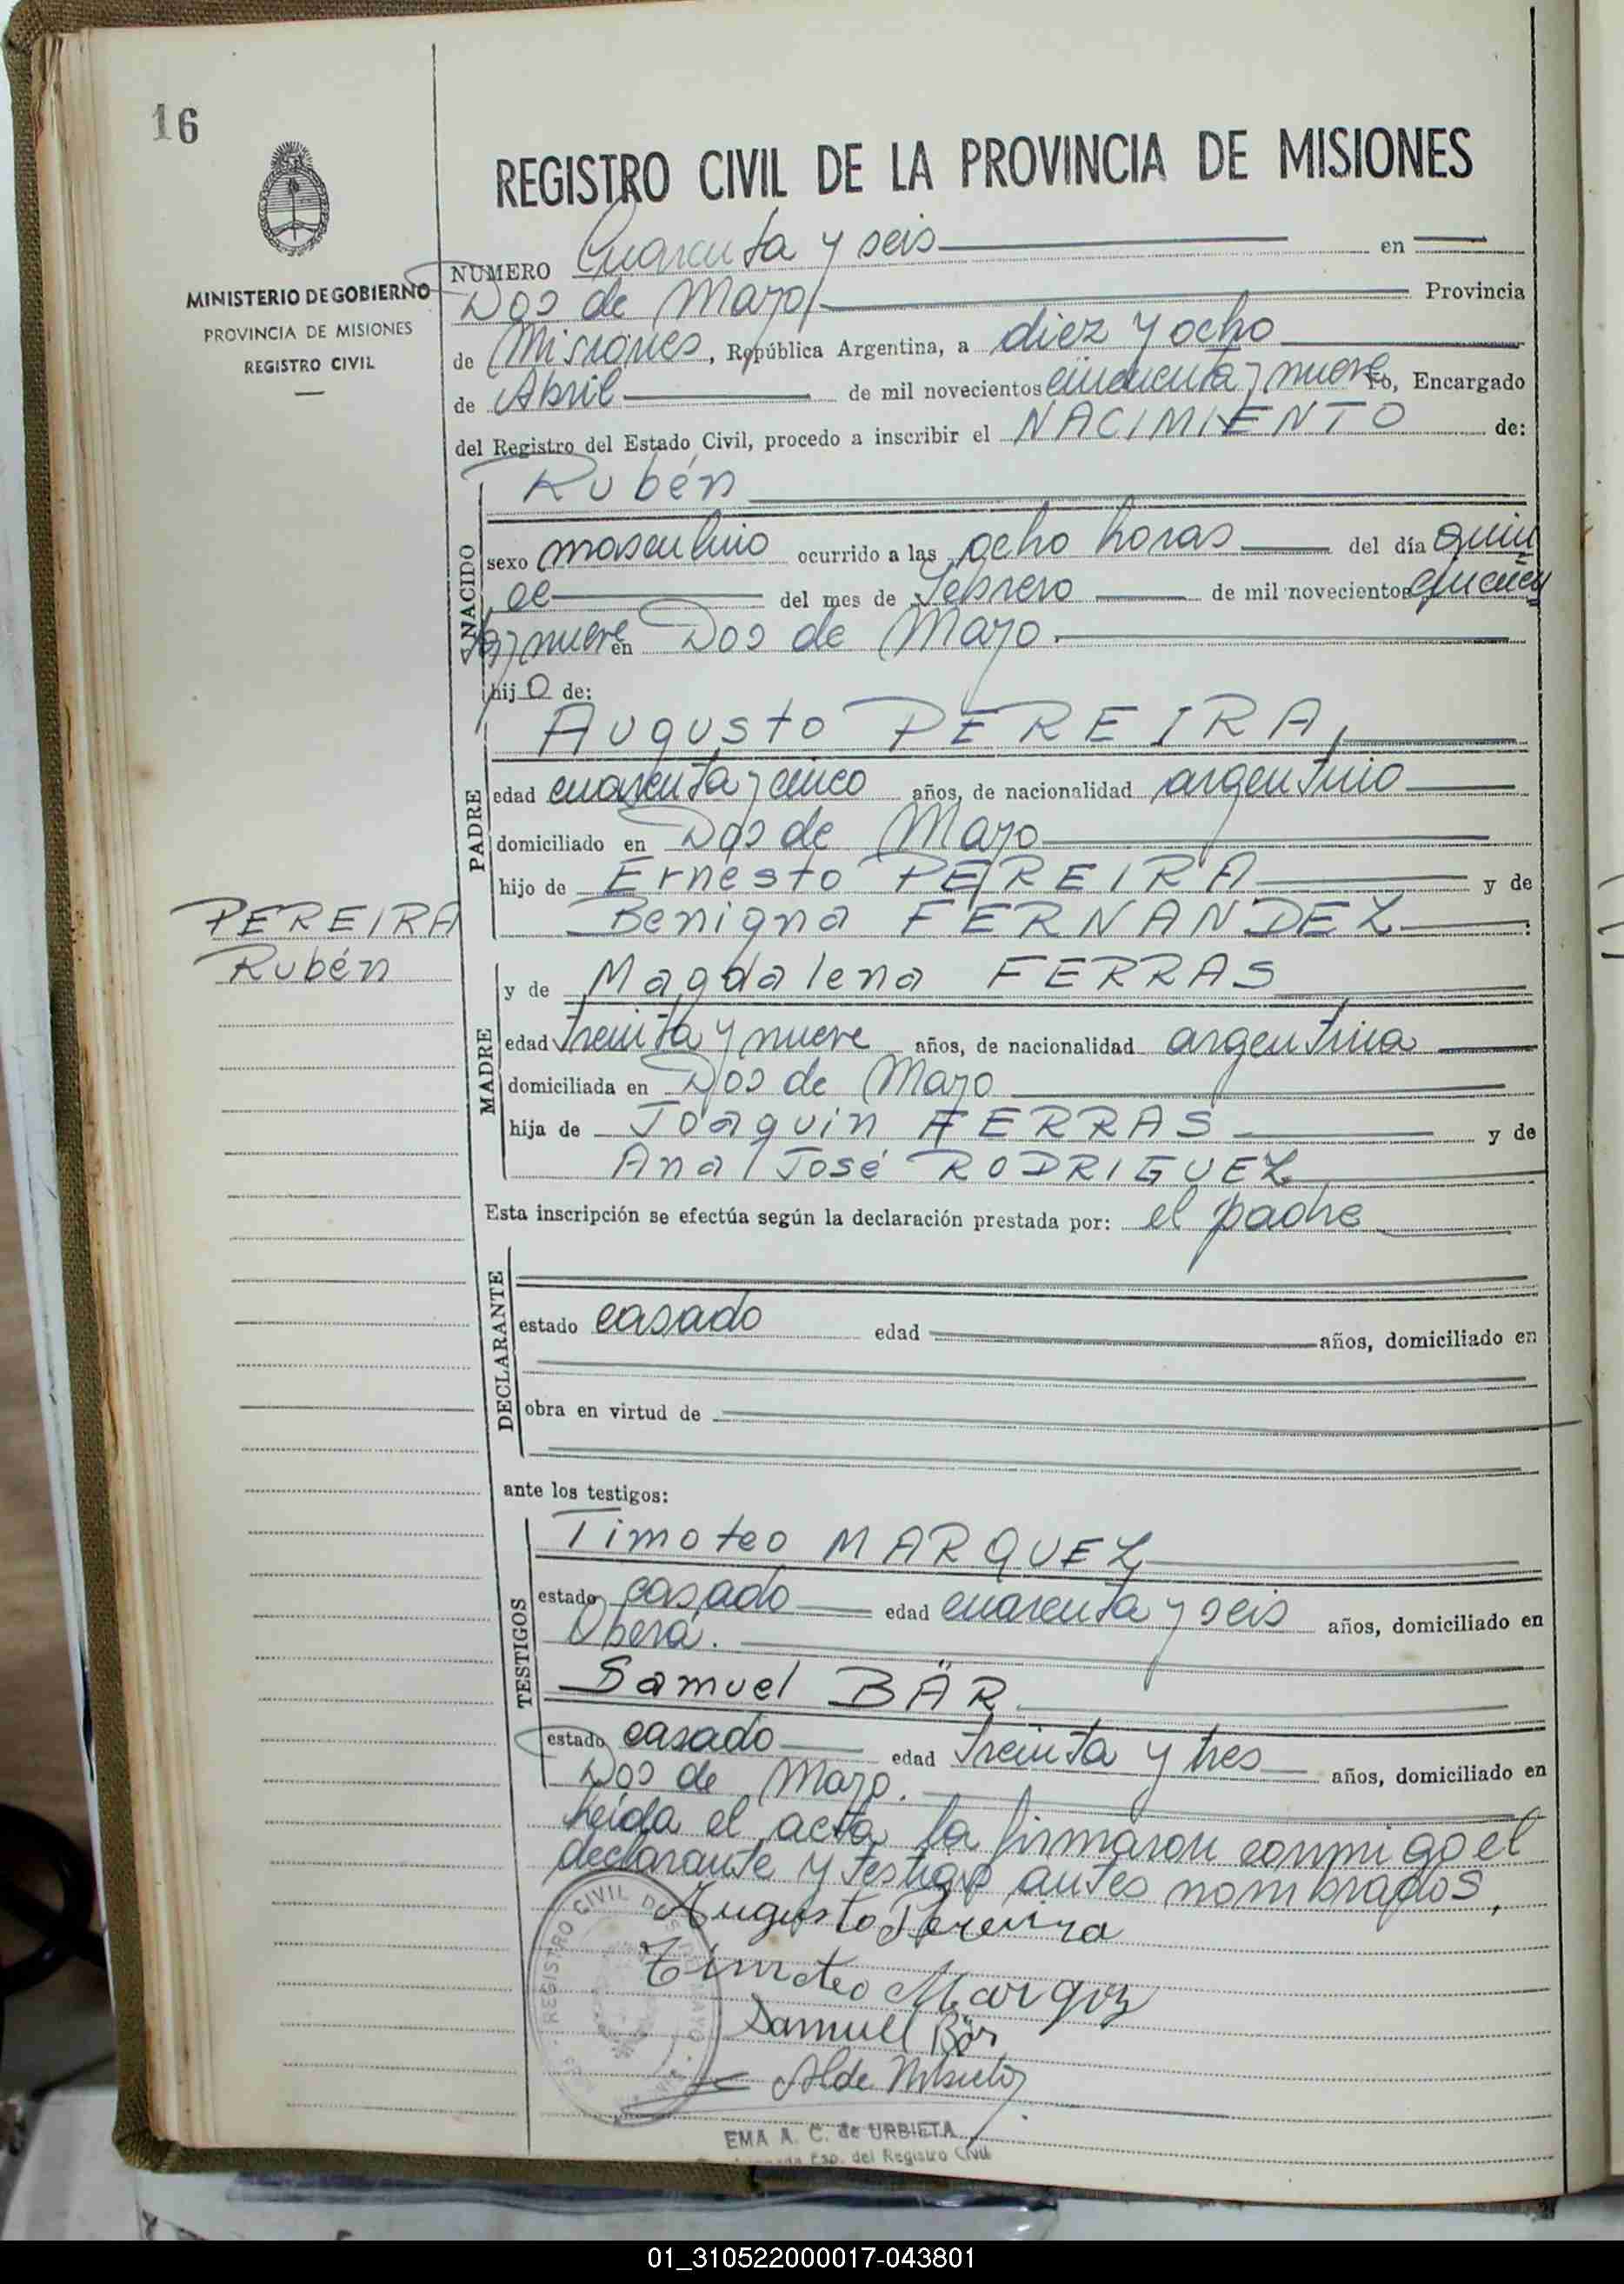 16
MINISTERIO DE GOBIERNO
PROVINCIA DE MISIONES
REGISTRO CIVIL
REGISTRO CIVIL DE LA PROVINCIA DE MISIONES
NUMERO Cuarenta y seis en
Dos de Mayo Provincia
de Misiones, República Argentina, a diez y ocho
de Abril de mil novecientos cincuenta y nueve Yo, Encargado
del Registro del Estado Civil, procedo a inscribir el NACIMIENTO de:
NACIDO
Rubén
sexo masculino ocurrido a las ocho horas del día quin
ce del mes de Febrero de mil novecientos cincuen
ta y nueve en Dos de Mayo.
hijo de:
PADRE
Augusto PEREIRA,
edad cuarenta y cinco años, de nacionalidad argentino
domiciliado en Dos de Mayo
hijo de Ernesto PEREIRA y de
Benigna FERNANDEZ
PEREIRA
Rubén
MADRE
y de Magdalena FERRAS
edad treinta y nueve años, de nacionalidad argentina
domiciliada en Dos de Mayo
hija de Joaquin FERRAS y de
Ana José RODRIGUEZ
Esta inscripción se efectúa según la declaración prestada por: el padre
DECLARANTE
estado casado edad años, domiciliado en
obra en virtud de
ante los testigos:
TESTIGOS
Timoteo MARQUEZ
estado casado edad cuarenta y seis años, domiciliado en
Oberá.
Samuel BÄR
estado casado edad treinta y tres años, domiciliado en
Dos de Mayo.
Leída el acta la firmaron conmigo el
declarante y testigos antes nombrados,
Augusto Pereira
Timoteo Marquz
Samuel Bär
REGISTRO CIVIL DOS DE MAYO
EMA A. C. de URBIETA
Esp. del Registro Civil
01_310522000017-043801